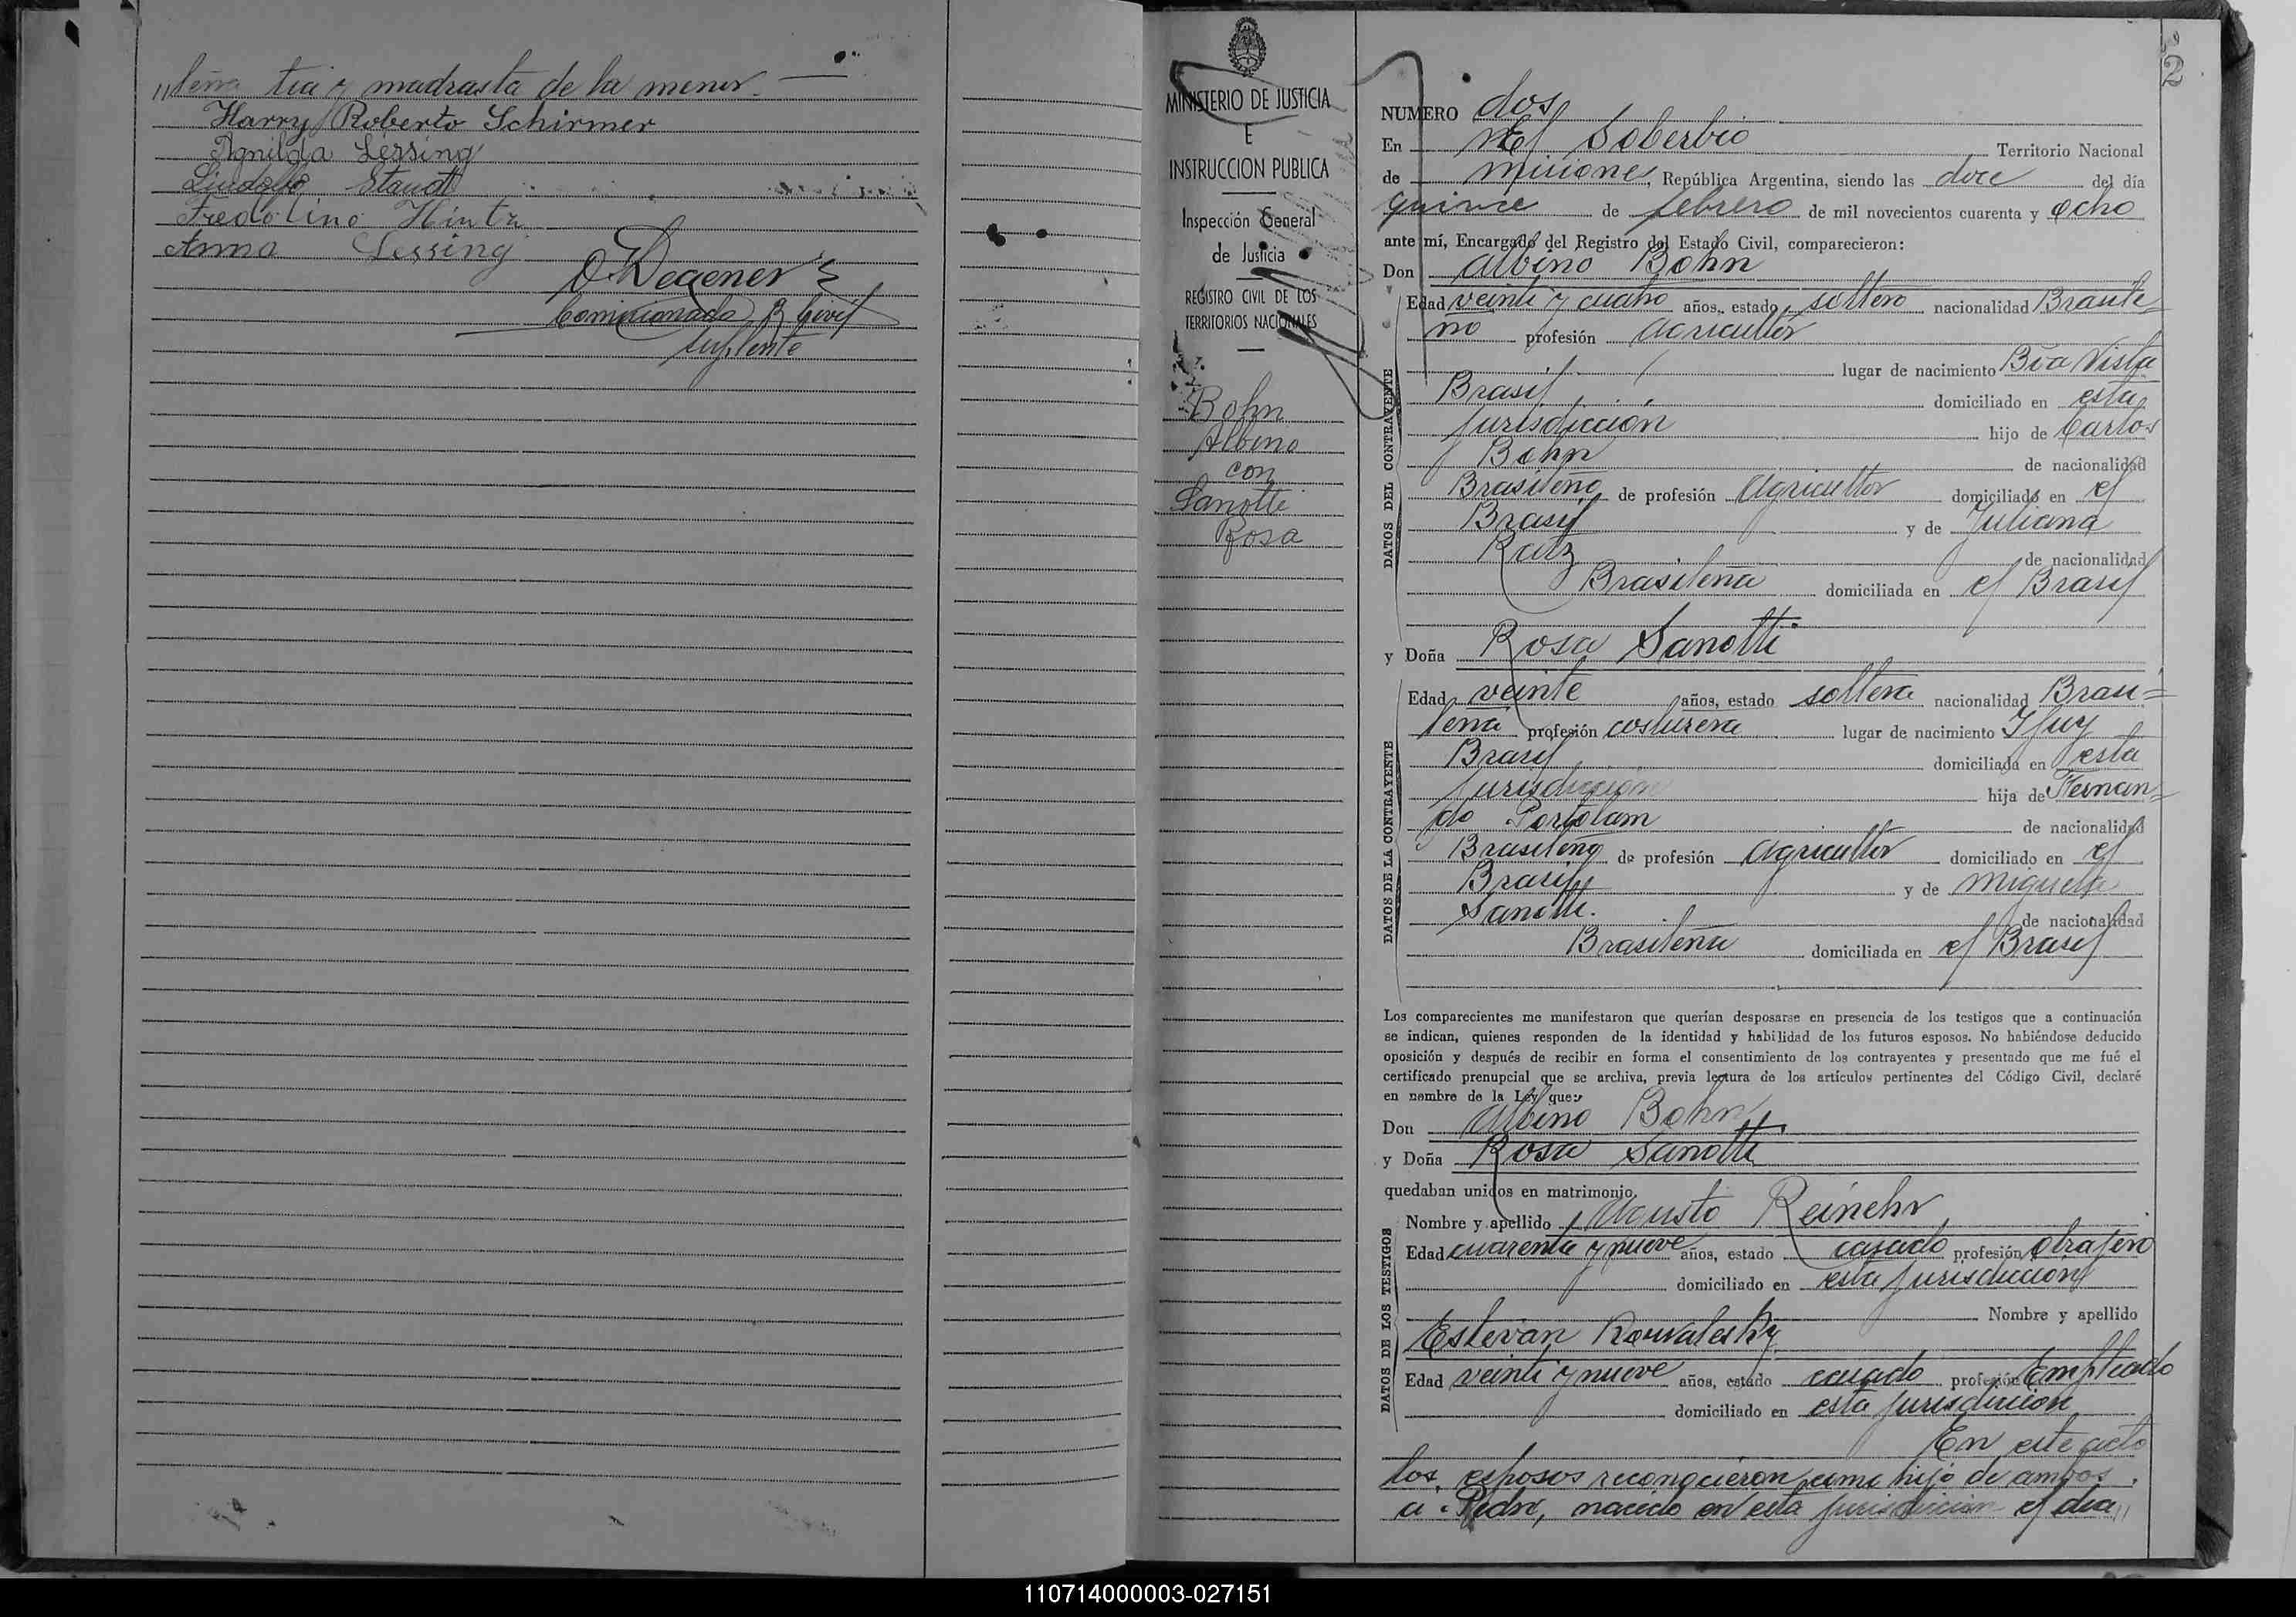 "leña tia y madrasta de la menor.
Harry Roberto Schirmer
Agnilda Lessing
Lindolfo Staudt
Fredolino Hintz
Anna Lessing
O Degener
Comisionado R Civil
suplente
MINISTERIO DE JUSTICIA
E
INSTRUCCION PUBLICA
Inspección General
de Justicia
REGISTRO CIVIL DE LOS
TERRITORIOS NACIONALES
Bohn
Albino
con
Sanotti
Rosa
2
NUMERO dos
En El Soberbio Territorio Nacional
de Misiones, República Argentina, siendo las doce del día
quince de febrero de mil novecientos cuarenta y ocho
ante mí, Encargado del Registro del Estado Civil, comparecieron:
Don Albino Bohn
Edad veinte y cuatro años, estado soltero nacionalidad Brasile=
no profesión agricultor
lugar de nacimiento Bôa Vista
Brasil domiciliado en esta
jurisdicción hijo de Carlos
Bohn de nacionalidad
Brasileño de profesión agricultor domiciliado en el
Brasil y de Juliana
Ratz de nacionalidad
Brasileña domiciliada en el Brasil
DATOS DEL CONTRAYENTE
y Doña Rosa Sanotti
Edad veinte años, estado soltera nacionalidad Brasi=
leña profesión costurera lugar de nacimiento Ijuy
Brasil domiciliada en esta
jurisdicción hija de Fernan=
do Portolam de nacionalidad
Brasileño de profesión agricultor domiciliado en el
Brasil y de Miguela
Sanotti. de nacionalidad
Brasileña domiciliada en el Brasil
DATOS DE LA CONTRAYENTE
Los comparecientes me manifestaron que querían desposarse en presencia de los testigos que a continuación
se indican, quienes responden de la identidad y habilidad de los futuros esposos. No habiéndose deducido
oposición y después de recibir en forma el consentimiento de los contrayentes y presentado que me fué el
certificado prenupcial que se archiva, previa lectura de los artículos pertinentes del Código Civil, declaré
en nombre de la Ley que:
Don Albino Bohn
y Doña Rosa Sanotti
quedaban unidos en matrimonio.
Nombre y apellido Agusto Reinehr
Edad cuarenta y nueve años, estado casado profesión obrajero
domiciliado en esta jurisdiccion
Nombre y apellido
Estevan Kowalesky
Edad veinte y nueve años, estado casado profesión Empleado
domiciliado en esta jurisdiccion
DATOS DE LOS TESTIGOS
En este acto
los esposos reconocieron como hijo de ambos
a Pedro, nacido en esta jurisdiccion el dia "
110714000003-027151